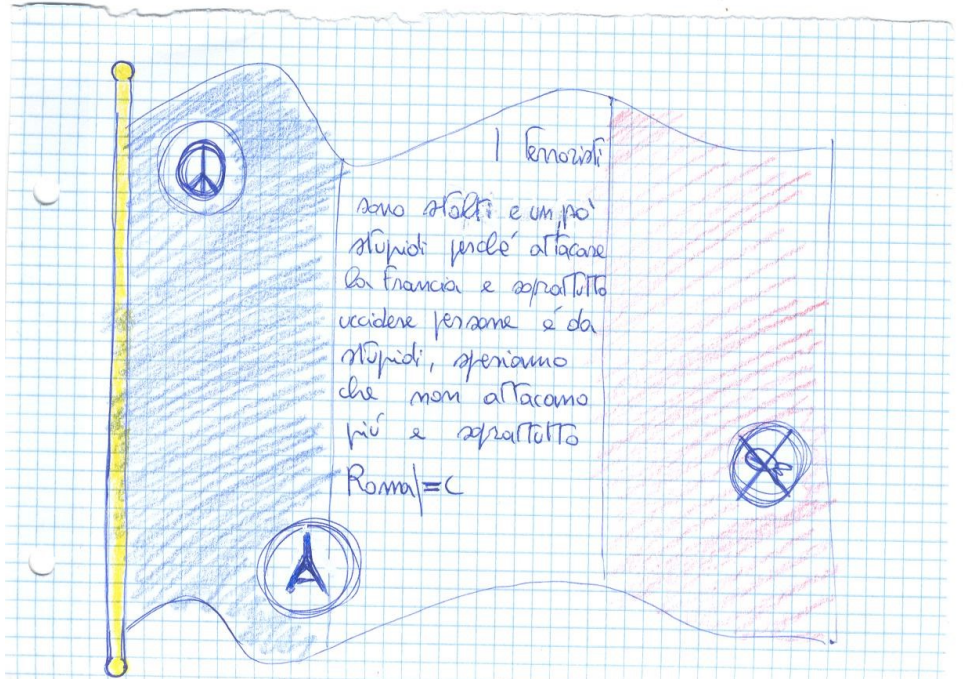 I Terroristi
sono stolti e un pò
stupidi perché attacare
la Francia e soprattutto
uccidere persone é da
stupidi, speriamo
che non attacano
più e soprattutto
Roma!=C